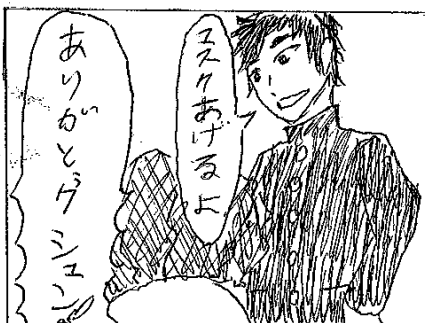 マスクあげるよ
ありがとヴシュン